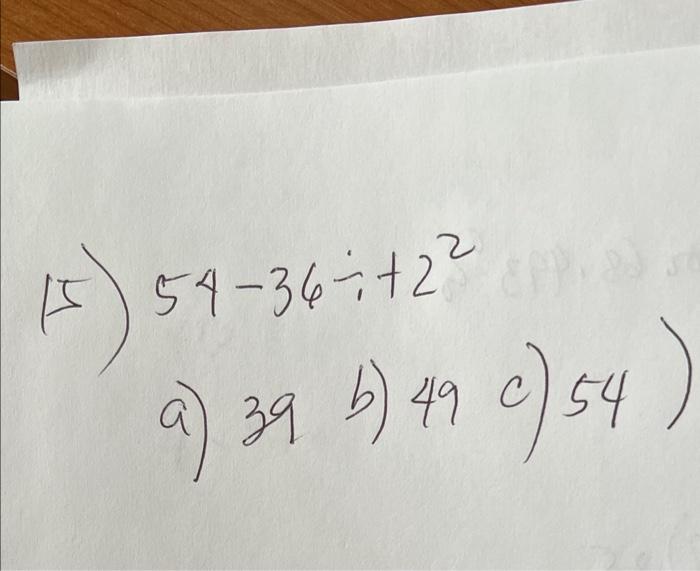 15) 54-36÷+2²
a) 39 b) 49 c) 54 )